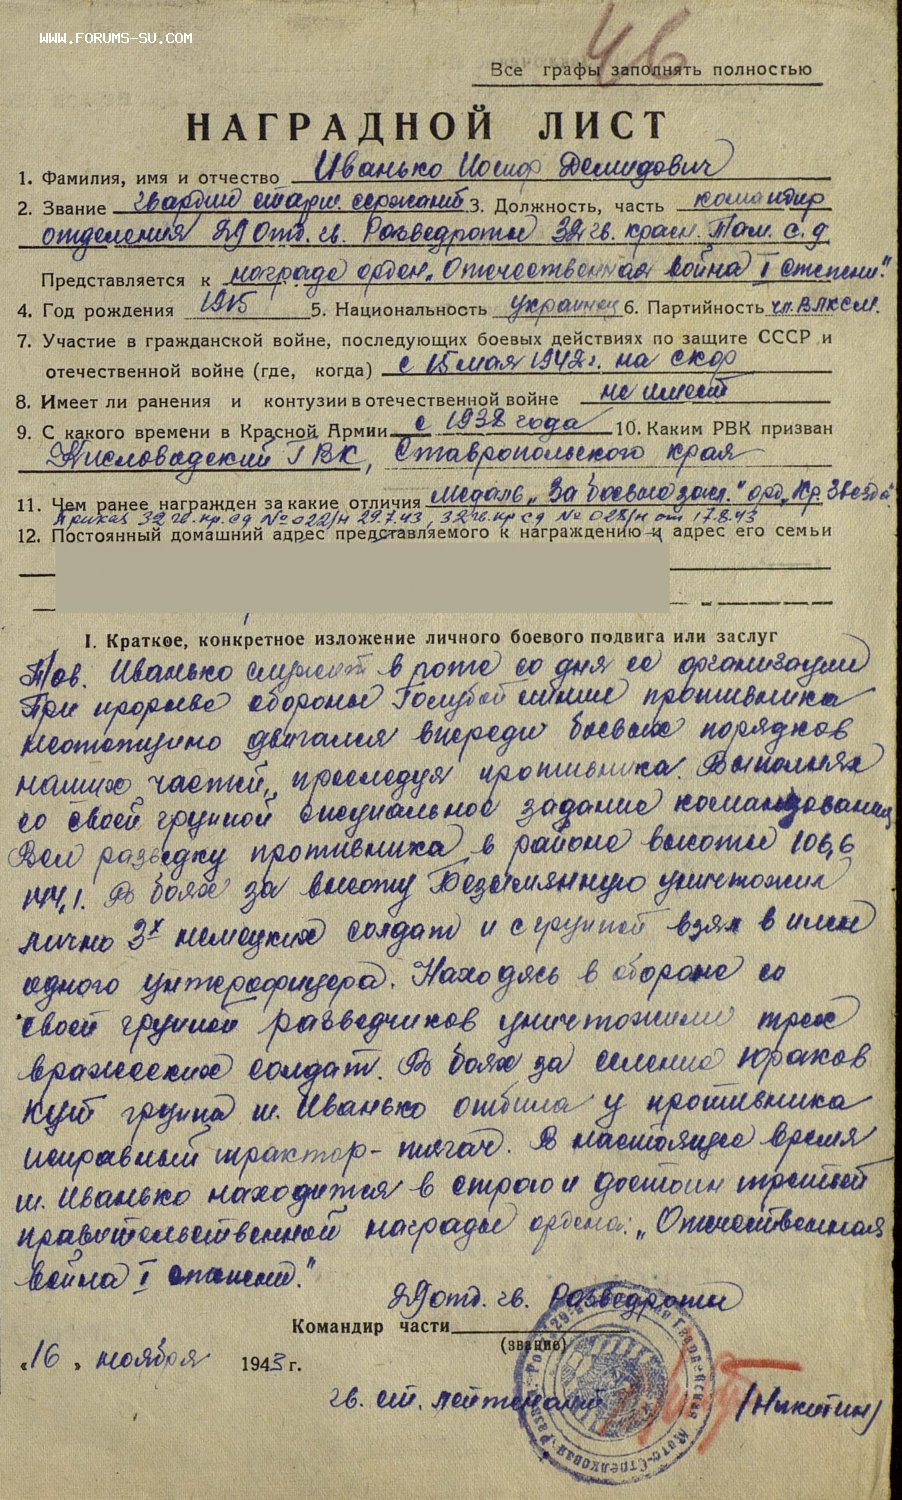 WWW.FORUMS-SU.COM
46
Все графы заполнять полностью
НАГРАДНОЙ ЛИСТ
1. Фамилия, имя и отчество Иванько Иосиф Демидович
2. Звание гвардии старш. сержант 3. Должность, часть командир
отделения 29 Отд. гв. Разведроты 32 гв. красн. Там. с.д.
Представляется к награде орден „Отечественная война I степени."
4. Год рождения 1915 5. Национальность украинец 6. Партийность чл. ВЛКСМ.
7. Участие в гражданской войне, последующих боевых действиях по защите СССР и
отечественной войне (где, когда) с 15 мая 1942 г. на СКФ
8. Имеет ли ранения и контузии в отечественной войне не имеет
9. С какого времени в Красной Армии с 1938 года 10. Каким РВК призван
Кисловодский ГВК, Ставропольского края
11. Чем ранее награжден за какие отличия Медаль „За боевые засл." орд „Кр. Звезда"
Приказ 32 гв. кр. сд № 022/н 29.7.43, 32 гв. кр сд № 028/н от 17.8.43
12. Постоянный домашний адрес представляемого к награждению и адрес его семьи
I. Краткое, конкретное изложение личного боевого подвига или заслуг
Тов. Иванько служит в роте со дня ее организации
При прорыве обороны Голубой линии противника
неотступно двигался впереди боевых порядков
наших частей, преследуя противника. Выполняя
со своей группой специальное задание командования
Вел разведку противника в районе высоты 106,6
144,1. В боях за высоту Безымянную уничтожил
лично 3х немецких солдат и с группой взял в плен
одного унтерофицера. Находясь в обороне со
своей группой разведчиков уничтожили трех
вражеских солдат. В боях за селение Юраков
Кут группа т. Иванько отбила у противника
исправный трактор-тягач. В настоящее время
т. Иванько находится в строю и достоин третьей
правительственной награды ордена: „Отечественная
война I степени."
29 отд. гв. Разведроты
Командир части
(звание)
„16" ноября 1943 г.
гв. ст. лейтенант (Никитин)